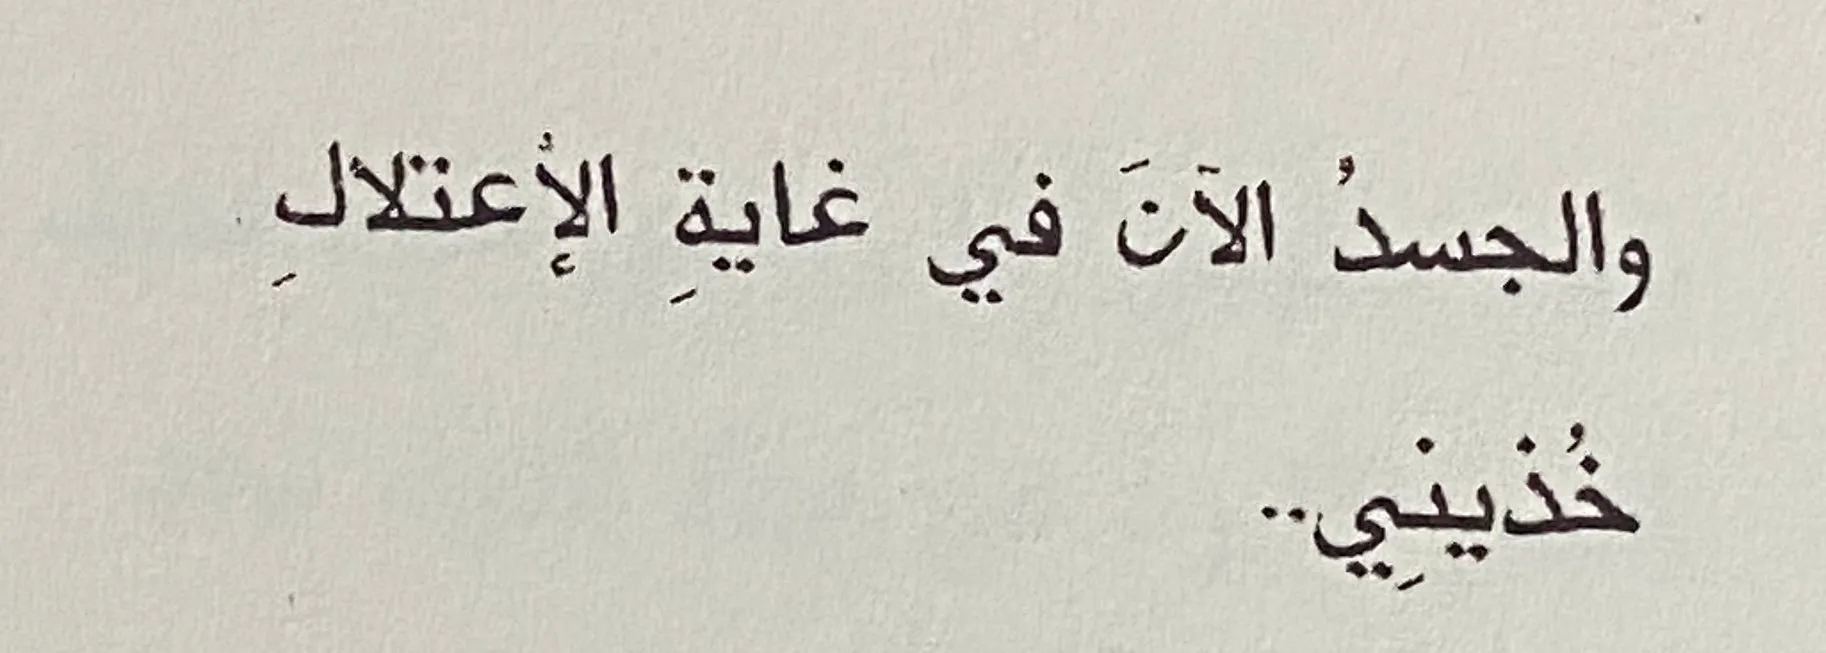 والجسدُ الآنَ في غايةِ الإُعتلالِ
خُذينِي..